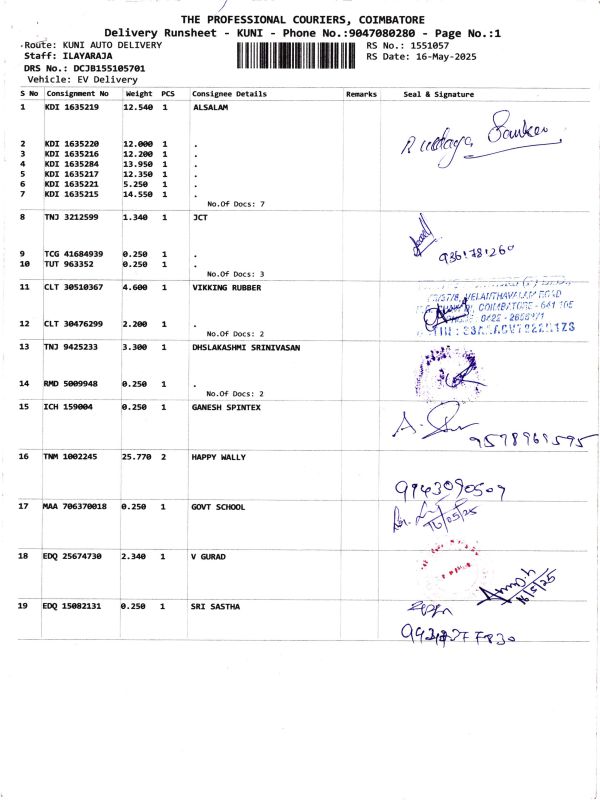 THE PROFESSIONAL COURIERS, COIMBATORE
Delivery Runsheet - KUNI - Phone No.:9047080280 - Page No.:1
Route: KUNI AUTO DELIVERY RS No.: 1551057
Staff: ILAYARAJA RS Date: 16-May-2025
DRS No.: DCJB155105701
Vehicle: EV Delivery
S No Consignment No Weight PCS Consignee Details Remarks Seal & Signature
1 KDI 1635219 12.540 1 ALSALAM
2 KDI 1635220 12.000 1 .
3 KDI 1635216 12.200 1 .
4 KDI 1635284 13.950 1 .
5 KDI 1635217 12.350 1 .
6 KDI 1635221 5.250 1 .
7 KDI 1635215 14.550 1 .
No.Of Docs: 7
8 TNJ 3212599 1.340 1 JCT
9 TCG 41684939 0.250 1 .
10 TUT 963352 0.250 1 .
No.Of Docs: 3
11 CLT 30510367 4.600 1 VIKKING RUBBER
VELANTHAVALAM ROAD
COIMBATORE - 641 105
12 CLT 30476299 2.200 1 .
No.Of Docs: 2
13 TNJ 9425233 3.300 1 DHSLAKASHMI SRINIVASAN
14 RMD 5009948 0.250 1 .
No.Of Docs: 2
15 ICH 159004 0.250 1 GANESH SPINTEX
9578961595
16 TNM 1002245 25.770 2 HAPPY WALLY
9943090509
17 MAA 706370018 0.250 1 GOVT SCHOOL
16/05/25
18 EDQ 25674730 2.340 1 V GURAD
16/5/25
19 EDQ 15082131 0.250 1 SRI SASTHA